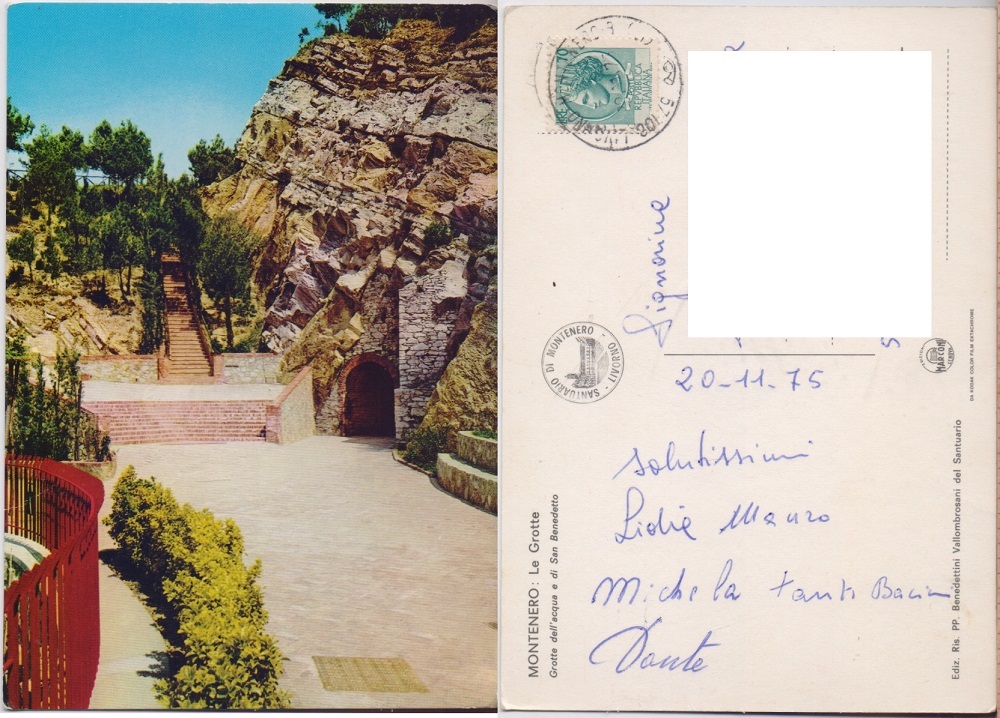 REPVBBLICA
ITALIANA
57100
SANTUARIO DI MONTENERO - LIVORNO -
Signorine
20-11-75
salutissimi
Lidia Mauro
Michela tanti Bacini
Dante
MONTENERO: Le Grotte
Grotte dell'acqua e di San Benedetto
MARCONI
DA KODAK COLOR FILM EKTACHROME
Ediz. Ris. PP. Benedettini Vallombrosani del Santuario